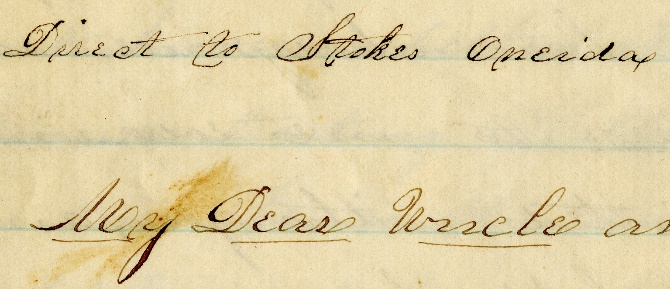 Direct to Stokes Oneida
My Dear Uncle an